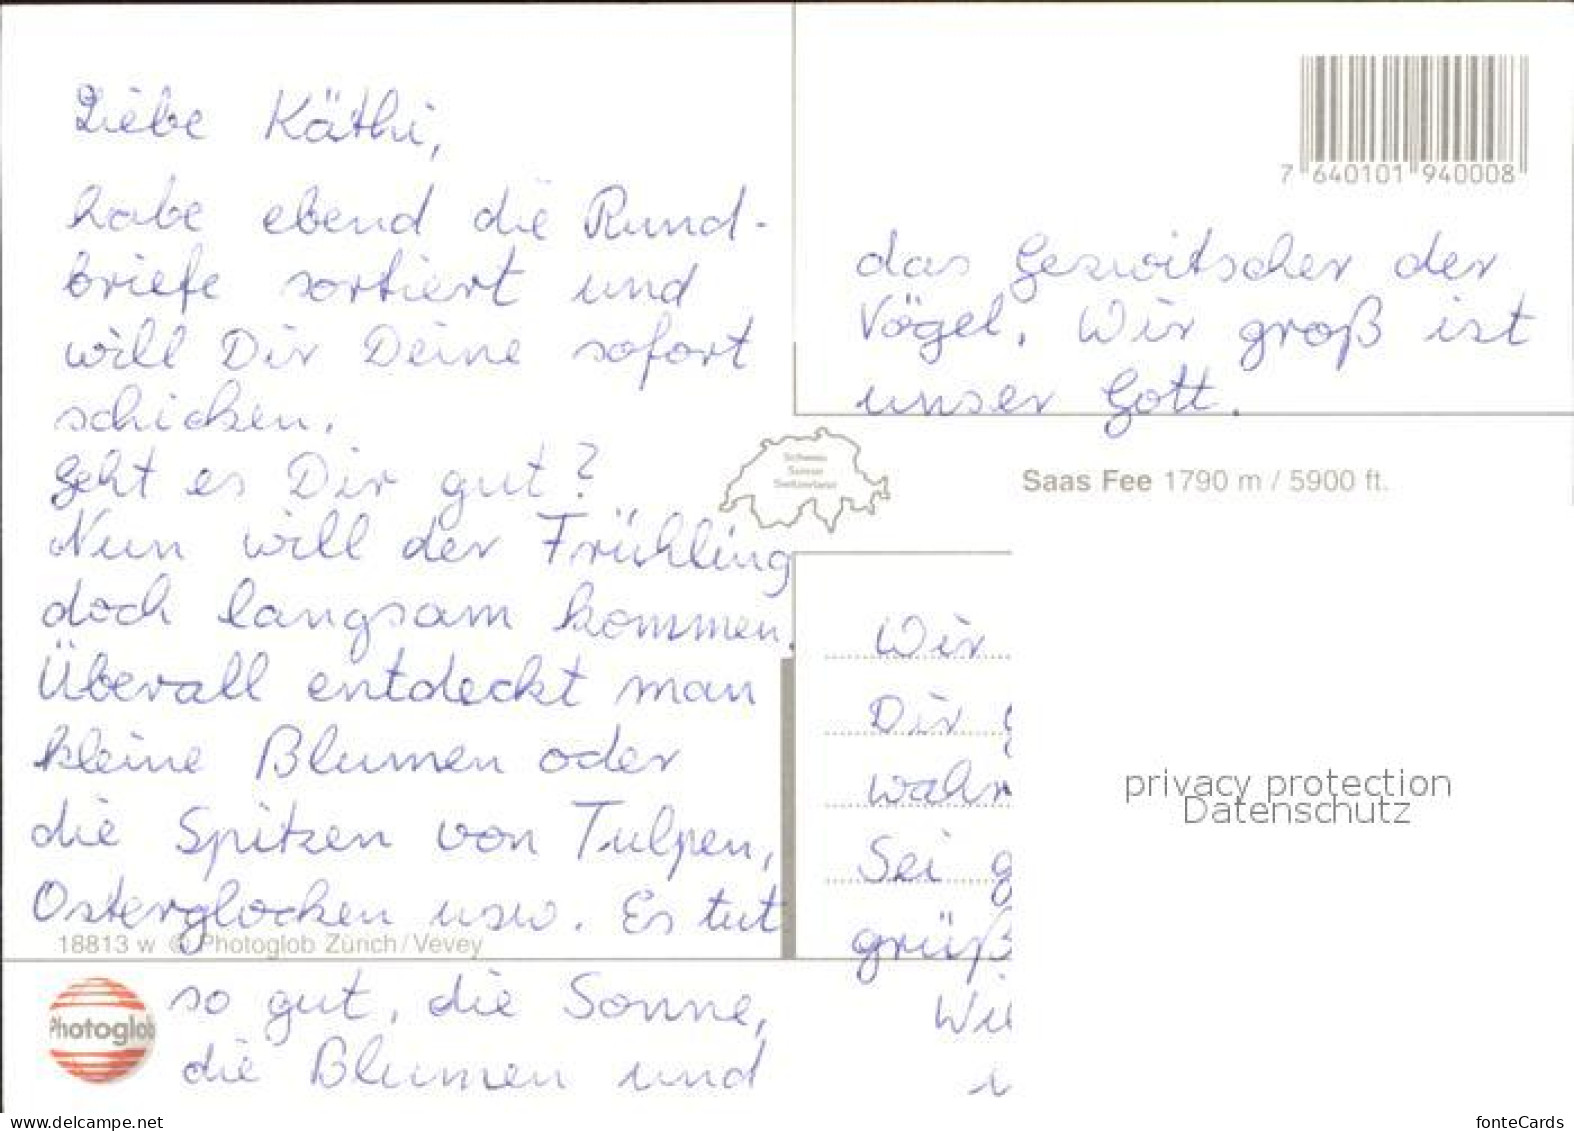 Liebe Käthi,
habe ebend die Rund-
briefe sortiert und
will Dir Deine sofort
schicken.
Geht es Dir gut?
Nun will der Frühling
doch langsam kommen.
Überall entdeckt man
kleine Blumen oder
die Spitzen von Tulpen,
Osterglocken usw. Es tut
18813 w © Photoglob Zürich/Vevey
so gut, die Sonne,
die Blumen und
Photoglob
7 640101 940008
das Gezwitscher der
Vögel. Wir groß ist
unser Gott.
Schweiz
Suisse
Switzerland
Saas Fee 1790 m / 5900 ft.
Wir
Dir
Sei g
grüß
privacy protection
Datenschutz
www.delcampe.net
fonteCards